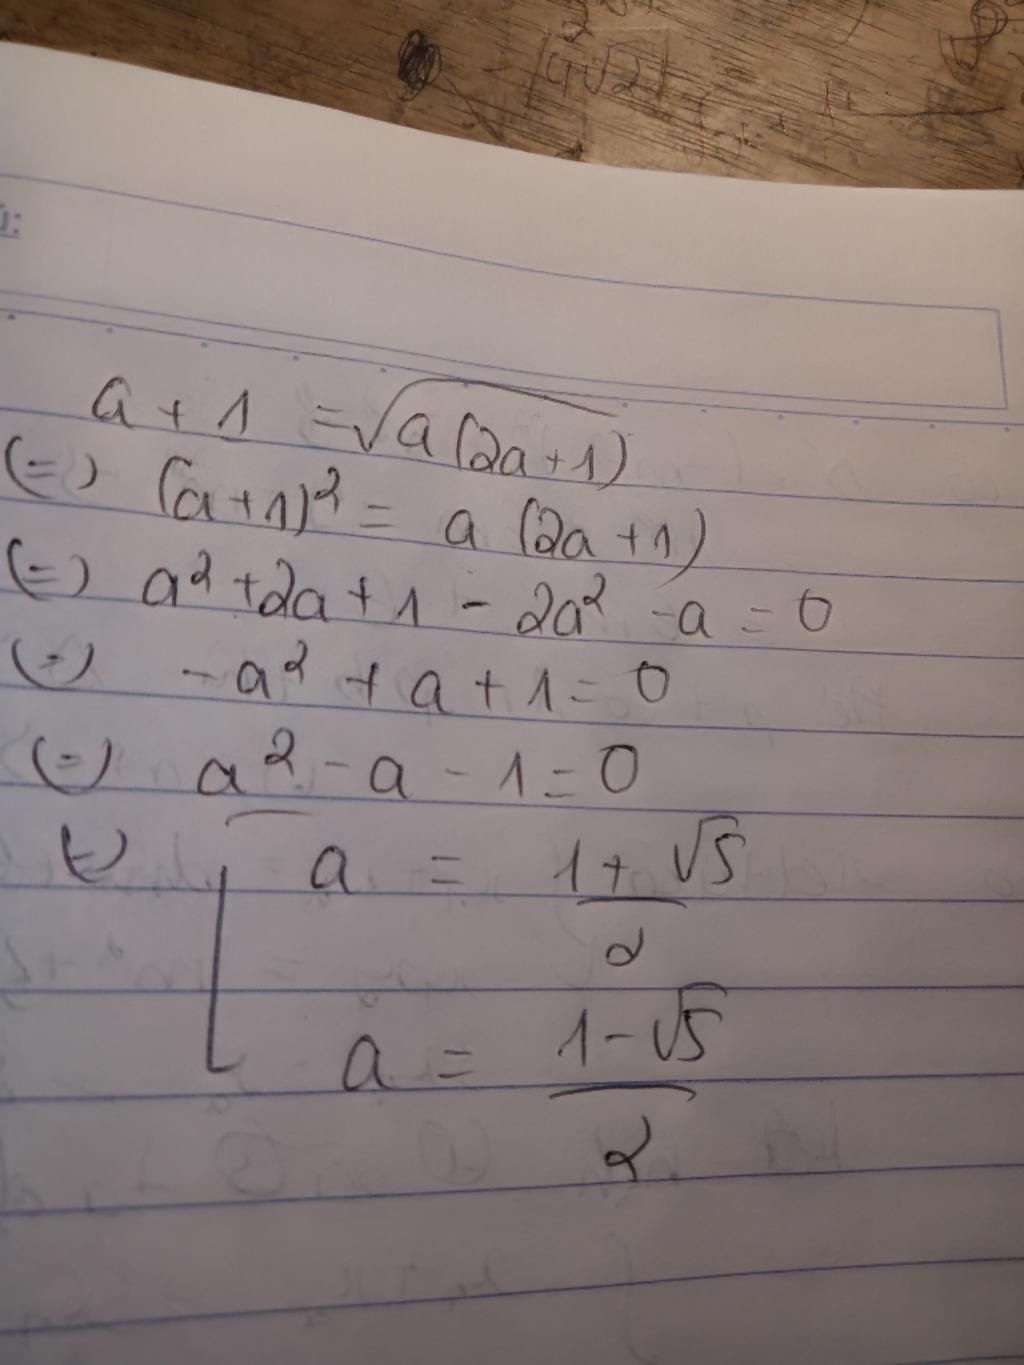 4√2
ú:
a + 1 = √a(2a+1)
(=) (a+1)² = a (2a+1)
(=) a² + 2a + 1 - 2a² - a = 0
(=) - a² + a + 1 = 0
(=) a² - a - 1 = 0
(=) [ a = (1+√5)/2
a = (1-√5)/2